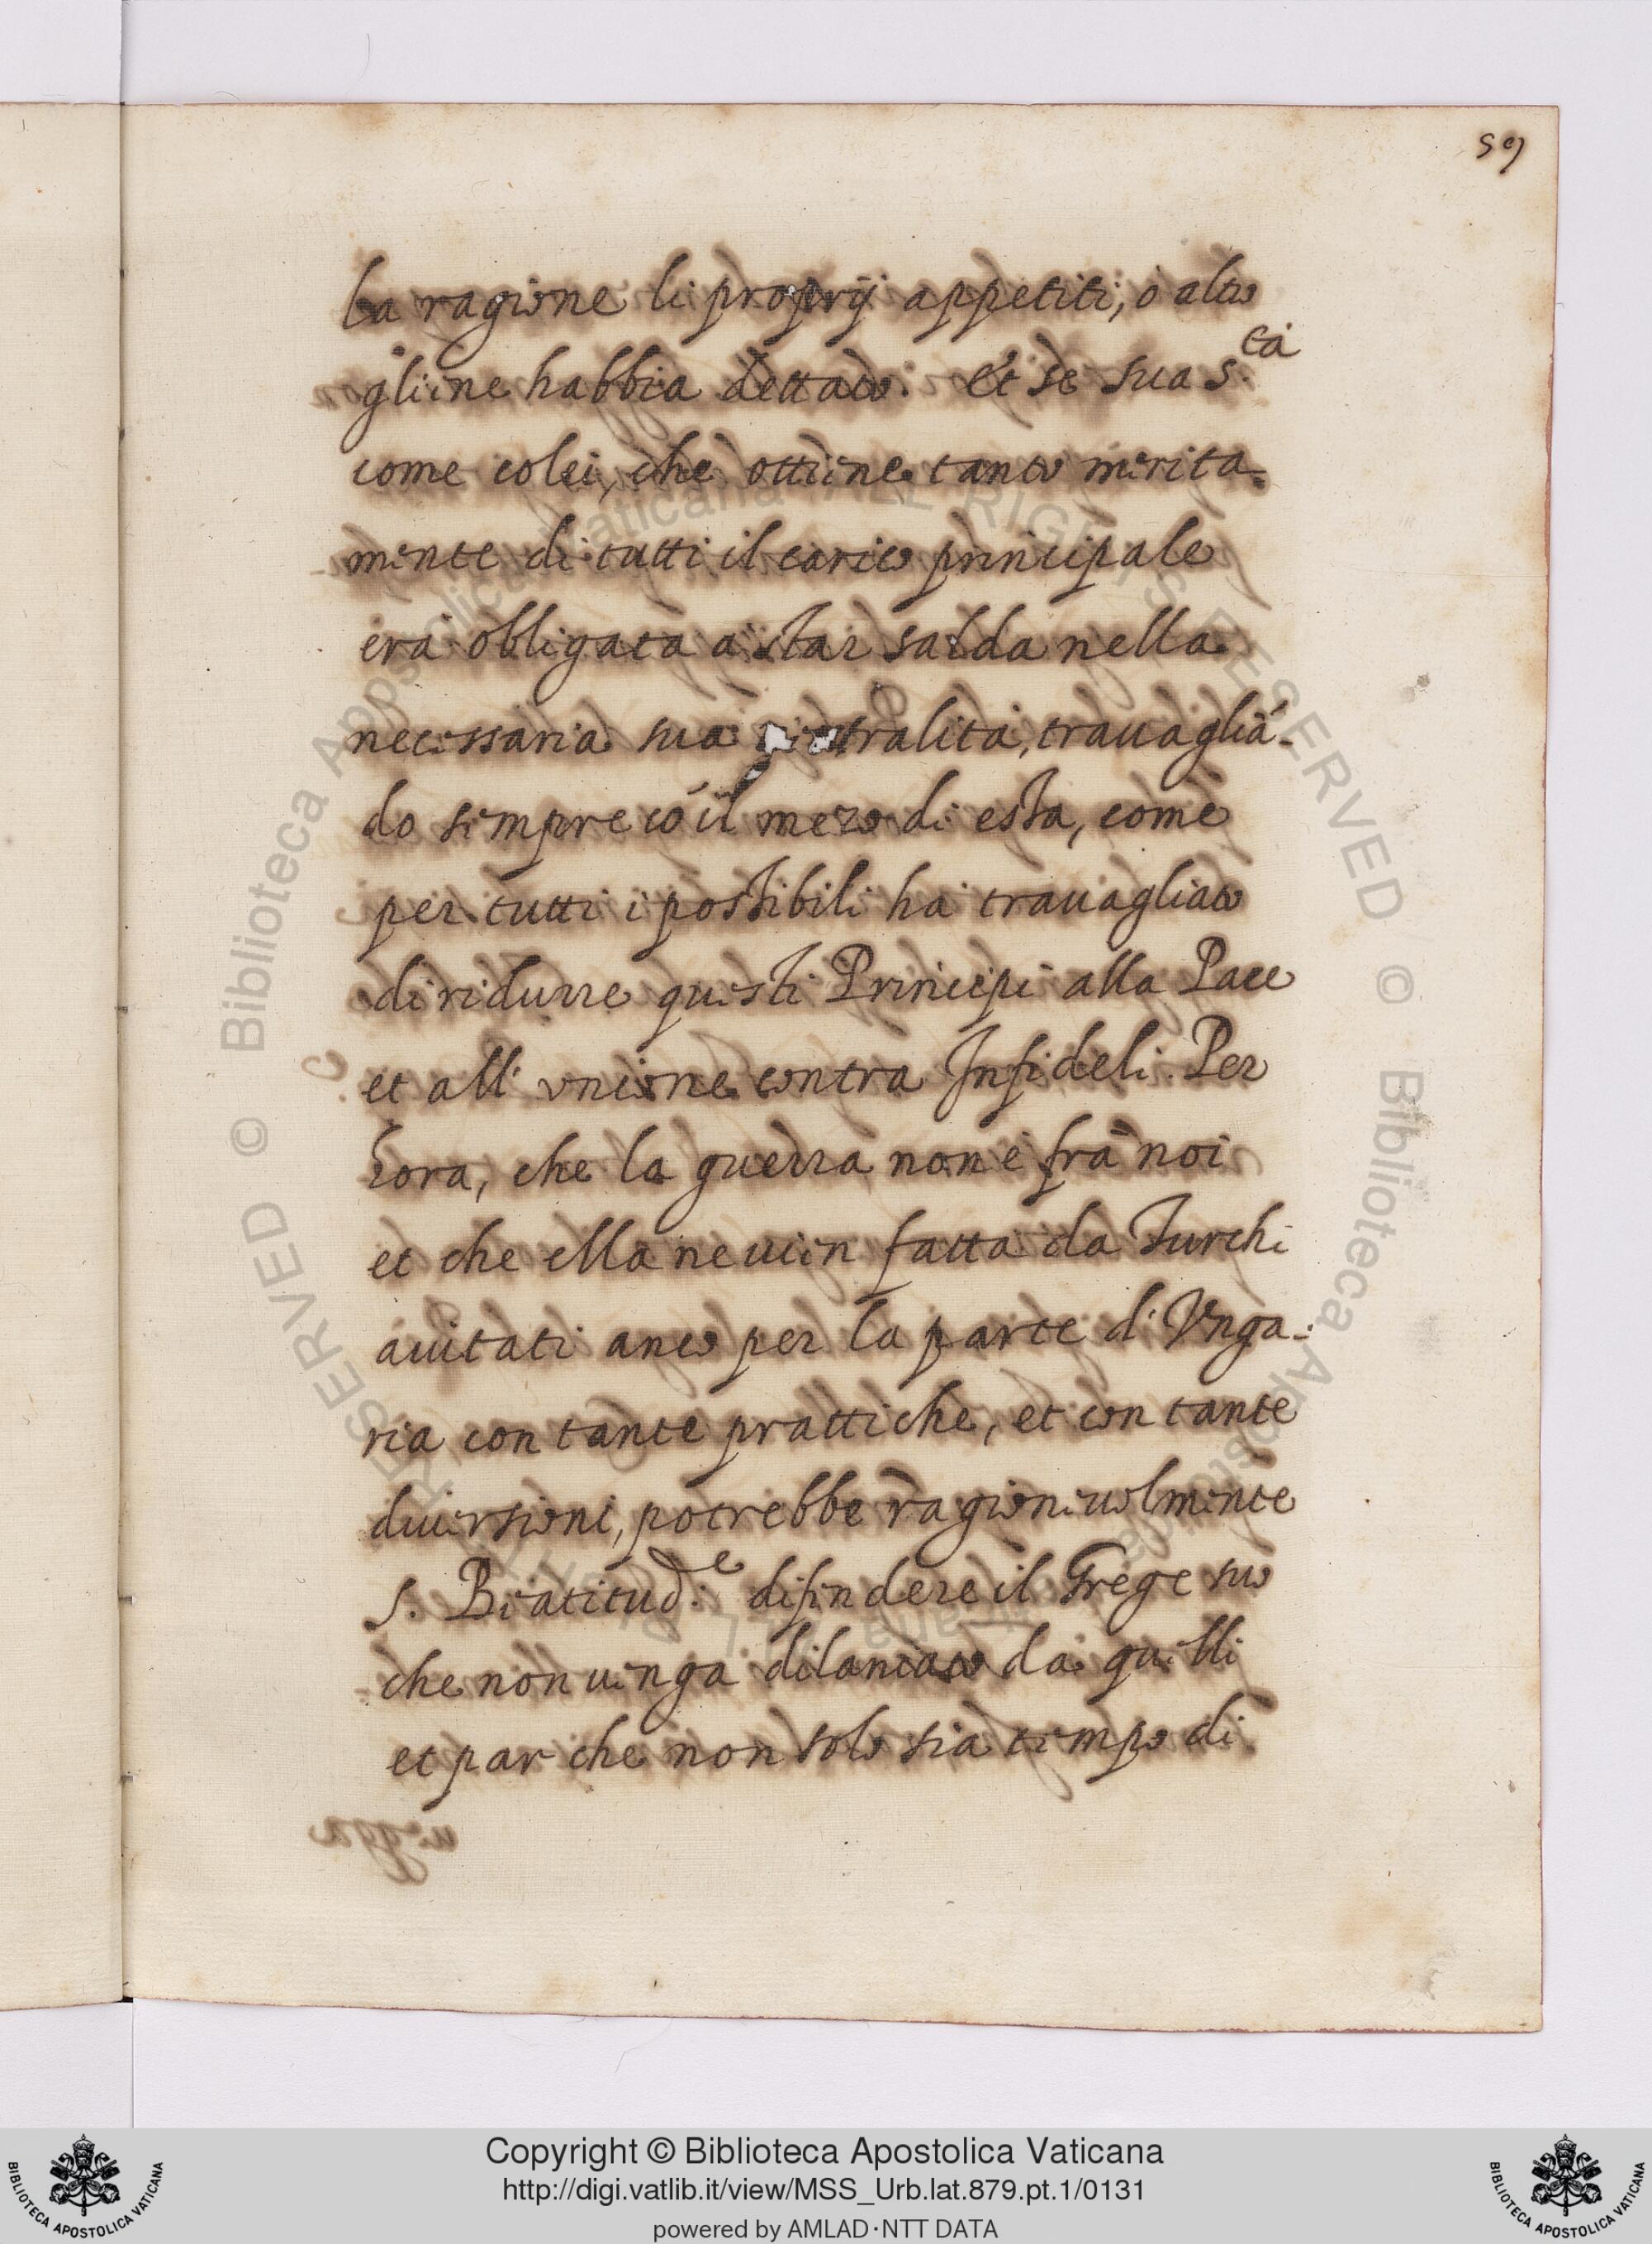 59
la ragione li proprij appetiti, ò altro
gliine habbia dettato. Et sè sua S.tà
come colei, che ottiene tanto merita-
mente di tutti il carico principale
era obligata à star salda nella
necessaria sua tralità, trauagliã-
do sempre cõ il mezo di esta, come
per tutti i possibili hà trauagliato
di ridurre questi Principi alla Pace
et all' vnione contra Infideli. Per
hora, che la guerra non è frà noi
et che ella ne uien fatta da Turchi
aiutati anco per la parte d'Vnga-
ria con tante prattiche, et con tante
diuersioni, potrebbe ragioneuolmente
S. Beatitud.e difendere il Grege suo
che non uenga dilaniato da quelli
et par che non solo sia tempo di
Copyright © Biblioteca Apostolica Vaticana
http://digi.vatlib.it/view/MSS_Urb.lat.879.pt.1/0131
powered by AMLAD·NTT DATA